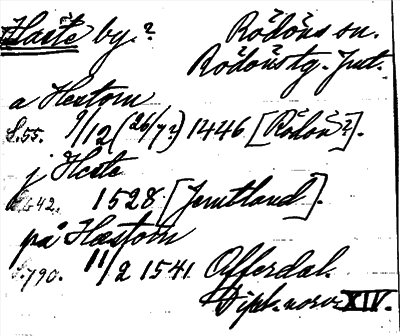 Haste by.? Rödöns sn.
Rödöns tg. Jmt.
a Hestom
S.55. 9/12 (26/7?) 1446 [Rödön?].
j Heste
S.642. 1528 [Jemtland].
på Hæstom
S.790. 11/2 1541 Offerdal.
Dipl. norv. XIV.